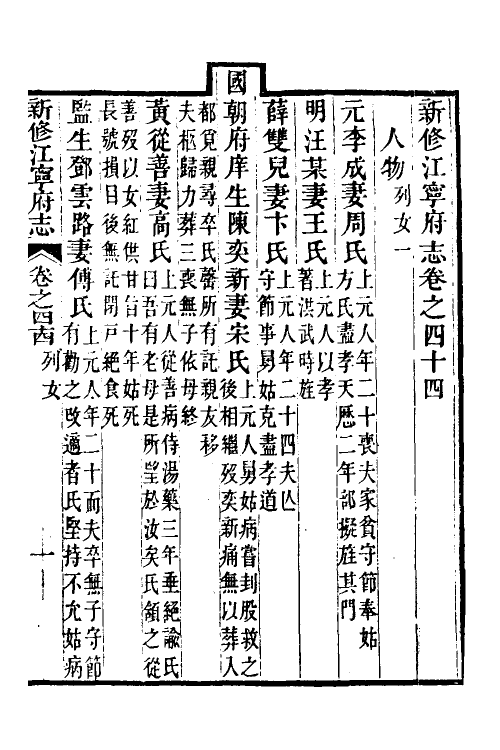 新修江寧府志卷之四十四
人物列女一
元李成妻周氏上元人年二十喪夫家貧守節奉姑
方氏盡孝天曆二年部擬旌其門
明汪某妻王氏上元人以孝
著洪武時旌
薛雙兒妻卞氏上元人年二十四夫亾
守節事舅姑克盡孝道
國朝府庠生陳奕新妻宋氏上元人舅姑病嘗刲股救之
後相繼歿奕新痛無以葬入
都覓親尋卒氏罄所有託親友移
夫柩歸力葬三喪無子依母終
黃從善妻高氏上元人從善病侍湯藥三年垂絕諭氏
曰吾有老母是所望於汝矣氏領之從
善歿以女紅供甘旨十年姑死
長號損日後無託閉戶絕食死
監生鄧雲路妻傅氏上元人年二十而夫卒無子守節
有勸之改適者氏堅持不允姑病
新修江寧府志
卷之四四
列女
一